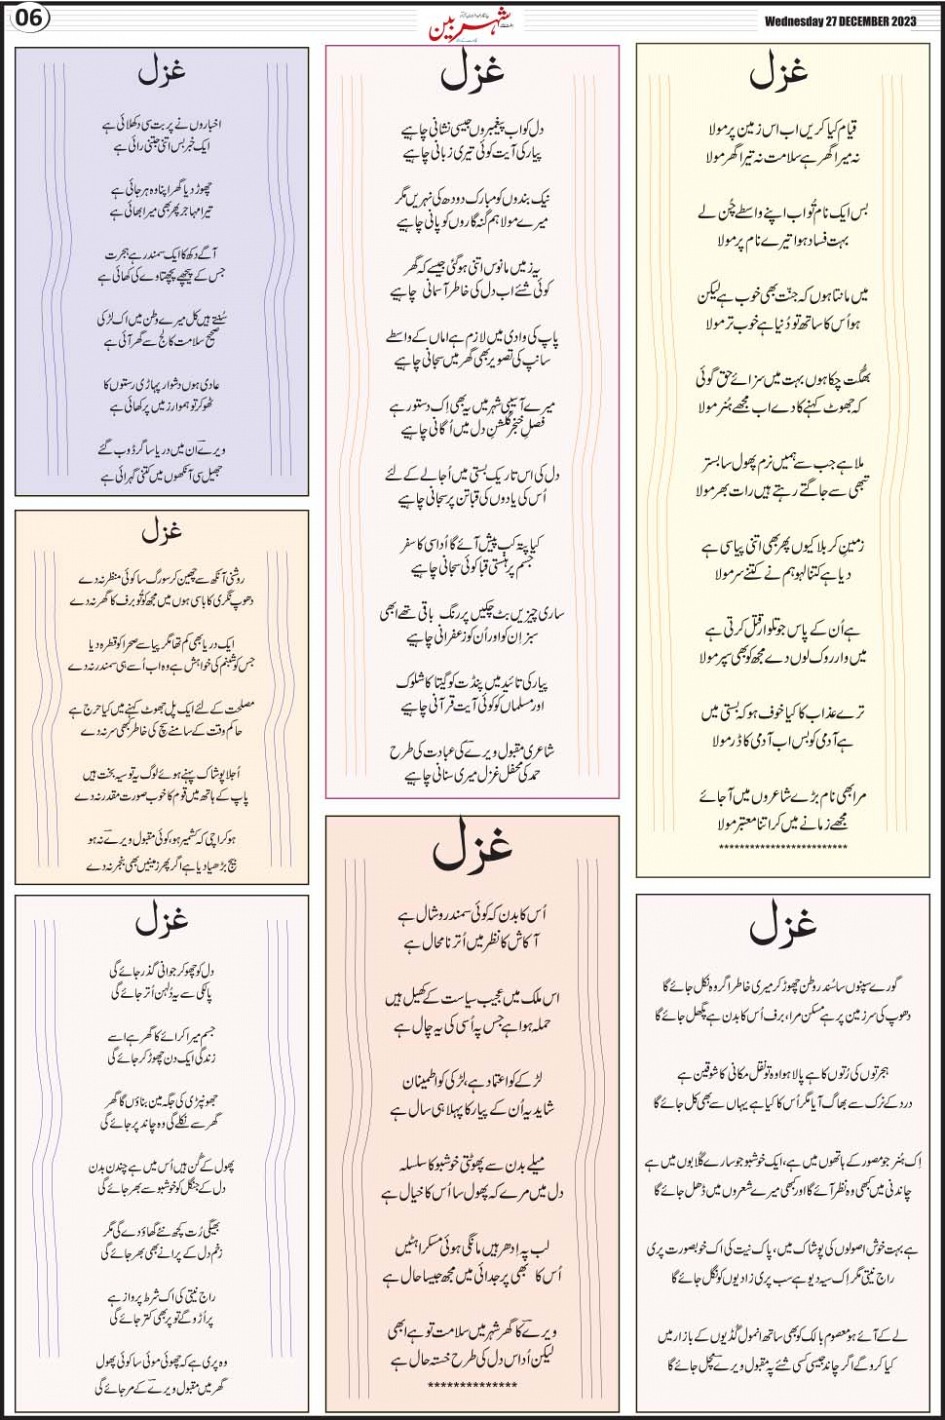 06
شہربین
Wednesday 27 DECEMBER 2023
غزل
قیام کیا کریں اب اس زمین پر مولا
نہ میرا گھر ہے سلامت نہ تیرا گھر مولا
بس ایک نام تُو اب اپنے واسطے چُن لے
بہت فساد ہوا تیرے نام پر مولا
میں مانتا ہوں کہ جنّت بھی خوب ہے لیکن
ہو اُس کا ساتھ تو دُنیا ہے خوب تر مولا
بھگت چکا ہوں بہت میں سزائے حق گوئی
کہ جھوٹ کہنے کا دے اب مجھے ہُنر مولا
ملا ہے جب سے ہمیں نرم پھول سا بستر
تبھی سے جاگتے رہتے ہیں رات بھر مولا
زمینِ کربلا کیوں پھر بھی اتنی پیاسی ہے
دیا ہے کتنا لہو ہم نے کتنے سر مولا
ہے اُن کے پاس جو تلوار قتل کرتی ہے
میں وار روک لوں دے مجھ کو بھی سپر مولا
ترے عذاب کا کیا خوف ہو کہ بستی میں
ہے آدمی کو بس اب آدمی کا ڈر مولا
مرا بھی نام بڑے شاعروں میں آ جائے
مجھے زمانے میں کر اتنا معتبر مولا
*************************
غزل
گورے سپنوں سا سُندر وطن چھوڑ کر میری خاطر اگر وہ نکل جائے گا
دھوپ کی سرزمین پر ہے مسکن مرا، برف اُس کا بدن ہے پگھل جائے گا
ہجرتوں کی رُتوں کا ہے پالا ہوا وہ تو نقل مکانی کا شوقین ہے
درد کے نرک سے بھاگ آیا مگر اُس کا کیا ہے یہاں سے بھی کل جائے گا
اِک ہُنر جو مصور کے ہاتھوں میں ہے، ایک خوشبو جو سارے گلابوں میں ہے
چاندنی میں کبھی وہ نظر آئے گا اور کبھی میرے شعروں میں ڈھل جائے گا
ہے بہت خوش اصولوں کی پوشاک میں، پاک نیت کی اک خوبصورت پری
راج نیتی مگر اِک سیہ دیو ہے سب پری زادیوں کو نگل جائے گا
لے کے آئے ہو معصوم بالک کو بھی ساتھ انمول گڈیوں کے بازار میں
کیا کرو گے اگر چاند جیسی کسی شئے پہ مقبول ویرے مچل جائے گا
غزل
دل کو اب پیغمبروں جیسی نشانی چاہیے
پیار کی آیت کوئی تیری زبانی چاہیے
نیک بندوں کو مبارک دودھ کی نہریں مگر
میرے مولا ہم گنہ گاروں کو پانی چاہیے
یہ زمیں مانوس اتنی ہو گئی جیسے کہ گھر
کوئی شئے اب دل کی خاطر آسمانی چاہیے
پاپ کی وادی میں لازم ہے اماں کے واسطے
سانپ کی تصویر بھی گھر میں سجانی چاہیے
میرے آسیبی شہر میں یہ بھی اِک دستور ہے
فصلِ خنجر گلشنِ دل میں اُگانی چاہیے
دل کی اس تاریک بستی میں اُجالے کے لئے
اُس کی یادوں کی قبا تن پر سجانی چاہیے
کیا پتہ کب پیش آئے گا اُداسی کا سفر
جسم پر ہنستی قبا کوئی سجانی چاہیے
ساری چیزیں بٹ چکیں پر رنگ باقی تھے ابھی
سبز اِن کو اور اُن کو زعفرانی چاہیے
پیار کی تائید میں پنڈت کو گیتا کا شلوک
اور مسلماں کو کوئی آیت قرآنی چاہیے
شاعری مقبول ویرے کی عبادت کی طرح
حمد کی محفل غزل میری سنانی چاہیے
غزل
اُس کا بدن کہ کوئی سمندر و شال ہے
آکاش کا نظر میں اُترنا محال ہے
اس ملک میں عجیب سیاست کے کھیل ہیں
حملہ ہوا ہے جس پہ اُسی کی یہ چال ہے
لڑکے کو اعتماد ہے، لڑکی کو اطمینان
شاید یہ اُن کے پیار کا پہلا ہی سال ہے
میلے بدن سے پھوٹتی خوشبو کا سلسلہ
دل میں مرے کہ پھول سا اُس کا خیال ہے
لب پہ اِدھر ہیں مانگی ہوئی مسکراہٹیں
اُس کا بھی پر جدائی میں مجھ جیسا حال ہے
ویرے کا گھر شہر میں سلامت تو ہے ابھی
لیکن اُداس دل کی طرح خستہ حال ہے
**************
غزل
اخباروں نے پربت سی دکھلائی ہے
ایک خبر بس اتنی جتنی رائی ہے
چھوڑ دیا گھر اپنا وہ ہرجائی ہے
تیرا مہاجر پھر بھی میرا بھائی ہے
آگے دکھ کا ایک سمندر ہے ہجرت
جس کے پیچھے پچھتاوے کی کھائی ہے
سُنتے ہیں کل میرے وطن میں اک لڑکی
صحیح سلامت کالج سے گھر آئی ہے
عادی ہوں دشوار پہاڑی رستوں کا
ٹھوکر تو ہموار زمیں پر کھائی ہے
ویرے اِن میں دریا ساگر ڈوب گئے
جھیل سی آنکھوں میں کتنی گہرائی ہے
غزل
روشنی آنکھ سے چھین کر سورگ سا کوئی منظر نہ دے
دھوپ نگری کا باسی ہوں میں مجھ کو تُو برف کا گھر نہ دے
ایک دریا بھی کم تھا مگر پیاسے صحرا کو قطرہ دیا
جس کو شبنم کی خواہش ہے وہ اب اُسے ہی سمندر نہ دے
مصلحت کے لئے ایک پل جھوٹ کہنے میں کیا حرج ہے
حاکمِ وقت کے سامنے سچ کی خاطر کبھی سر نہ دے
اُجلا پوشاک پہنے ہوئے لوگ یہ تو سیہ بخت ہیں
پاپ کے ہاتھ میں قوم کا خوب صورت مقدر نہ دے
ہو کراچی کہ کشمیر ہو، کوئی مقبول ویرے نہ ہو
بیج بڑھیا دیا ہے اگر پھر زمینیں بھی بنجر نہ دے
غزل
دل کو چھو کر جوانی گذر جائے گی
پالکی سے یہ دُلہن اُتر جائے گی
جسم میرا کرائے کا گھر ہے اسے
زندگی ایک دن چھوڑ کر جائے گی
جھونپڑی کی جگہ مین بناؤں گا گھر
گھر سے نکلے گی وہ چاند پر جائے گی
پھول کے گُن ہیں اُس میں ہے چندن بدن
دل کے جنگل کو خوشبو سے بھر جائے گی
بھیگی رُت کچھ نئے گھاؤ دے گی مگر
زخم دل کے پرانے بھی بھر جائے گی
راج نیتی کی اک شرط پرواز ہے
پر اُڑو گے تو پر بھی کتر جائے گی
وہ پری ہے کہ چھوئی موئی سا کوئی پھول
گھر میں مقبول ویرے کے مر جائے گی